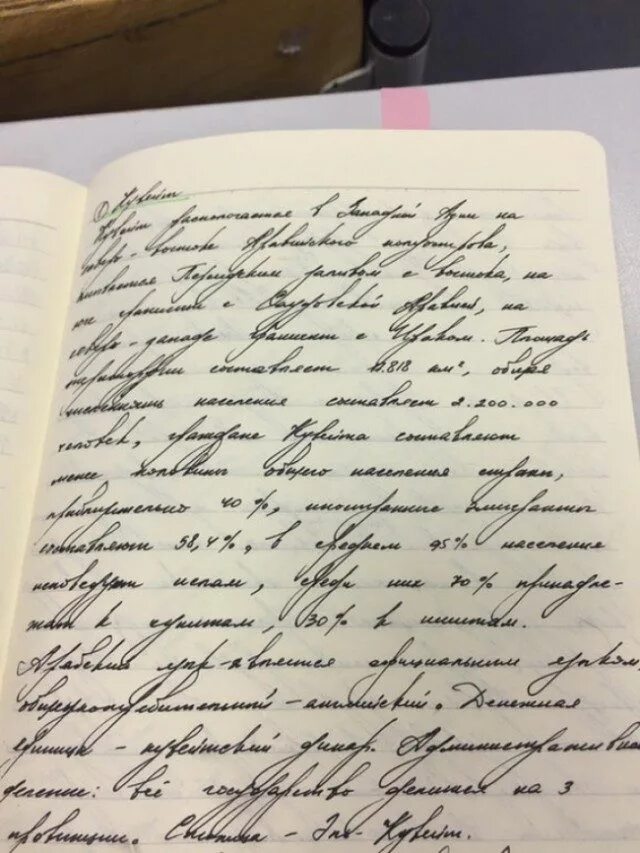 ① Кувейт
Кувейт расположен в Западной Азии на
северо-востоке Аравийского полуострова,
омывается Персидским заливом с востока, на
юге граничит с Саудовской Аравией, на
северо-западе граничит с Ираком. Площадь
территории составляет 17.818 км², общая
численность населения составляет 2.200.000
человек, граждане Кувейта составляют
менее половины общего населения страны,
приблизительно 40%, иностранные эмигранты
составляют 58,4%, в среднем 95% населения
исповедует ислам, среди них 70% принадле-
жат к суннитам, 30% к шиитам.
Арабский язык является официальным языком,
общеупотребительный - английский. Денежная
единица - кувейтский динар. Административное
деление: всё государство делится на 3
провинции. Столица - Эль-Кувейт.